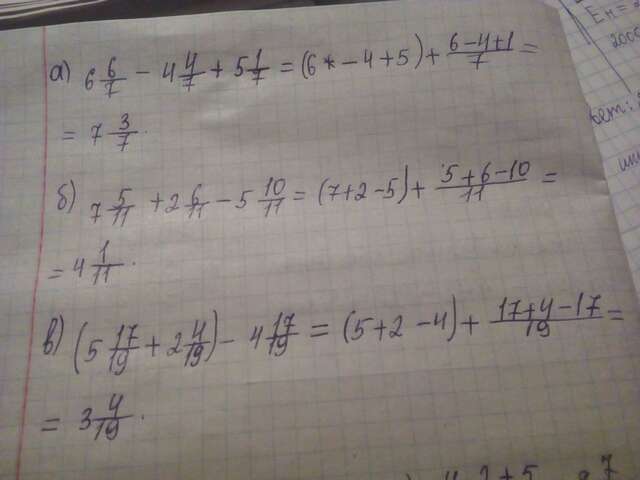 а) 6 6/7 − 4 4/7 + 5 1/7 = (6 − 4 + 5) + (6−4+1)/7 =
= 7 3/7.
б) 7 5/11 + 2 6/11 − 5 10/11 = (7+2−5) + (5+6−10)/11 =
= 4 1/11.
в) (5 17/19 + 2 4/19) − 4 17/19 = (5+2−4) + (17+4−17)/19 =
= 3 4/19.
Ем = 2
2000
вет:
4 2 + 5
7